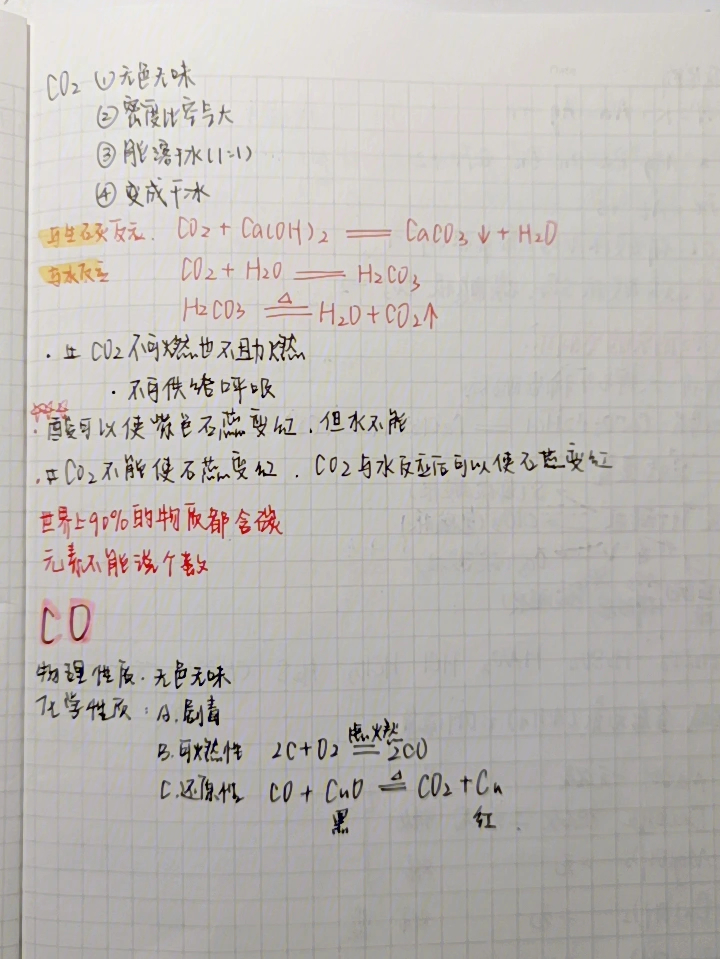 CO₂ ①无色无味
②密度比空气大
③能溶于水(1:1)
④变成干冰
与生石灰反应. CO₂ + Ca(OH)₂ == CaCO₃↓ + H₂O
与水反应 CO₂ + H₂O == H₂CO₃
H₂CO₃ ==△== H₂O + CO₂↑
· CO₂不可燃也不助燃
· 不可供给呼吸
· 酸可以使紫色石蕊变红，但水不能
· CO₂不能使石蕊变红. CO₂与水反应后可以使石蕊变红
世界上90%的物质都含碳
元素不能说个数
CO
物理性质. 无色无味
化学性质: A.剧毒
B.可燃性 2C+O₂ ==点燃== 2CO
C.还原性 CO + CuO ==△== CO₂ + Cu
黑 红.